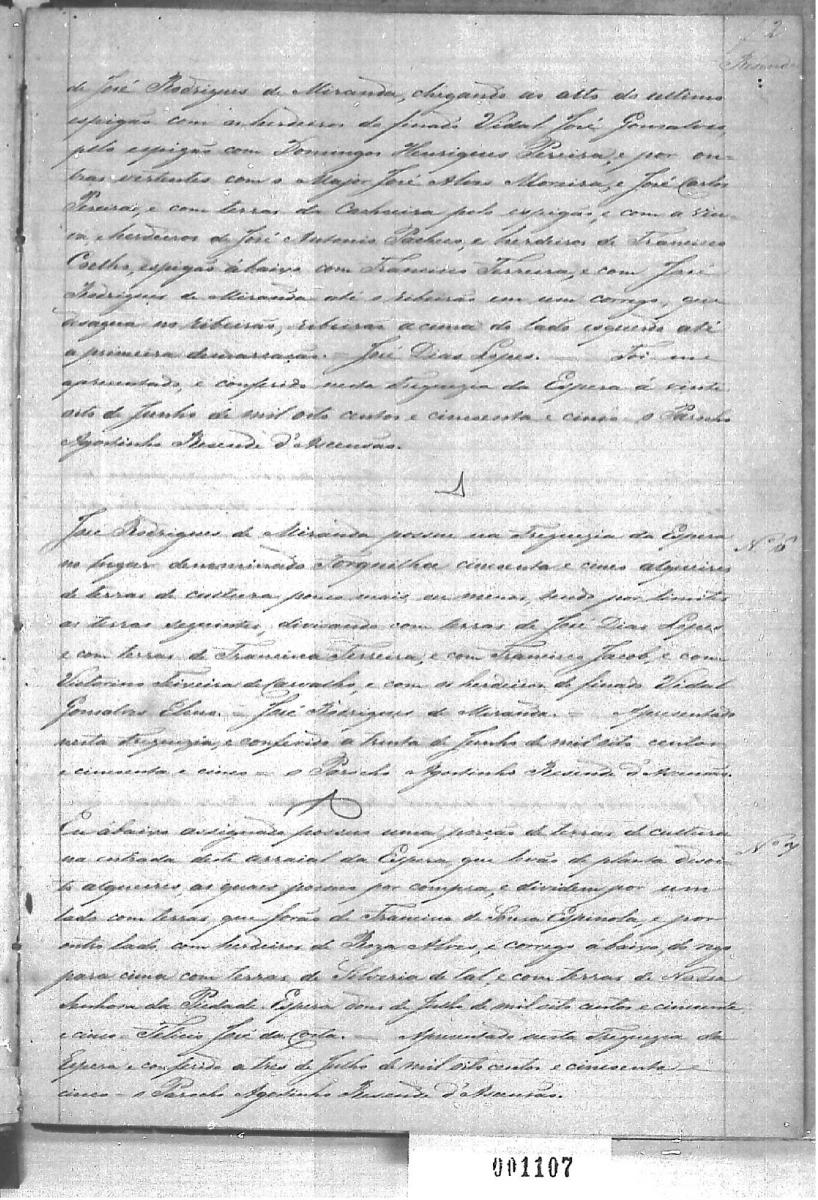 2
Resende
de José Rodrigues de Miranda, chegando ao alto do ultimo
espigão com os herdeiros do finado Vidal José Gonsalves,
pelo espigão com Domingos Henriques Pereira, e por ou-
tras vertentes com o Major José Alves Moreira, e José Carlos
Pereira, e com terras da Cachoeira pelo espigão, e com a viu-
va, e herdeiros de José Antonio Pacheco, e herdeiros de Francisco
Coelho, espigão ábaixo com Francisco Ferreira, e com José
Rodrigues de Miranda até o ribeirão em um corrego, que
desagua no ribeirão, ribeirão acima do lado esquerdo até
a primeira demarcação. = José Dias Lopes. = Foi me
apresentado, e conferido nesta Freguezia da Espera á vinte
oito de Junho de mil oito centos e cincoenta e cinco - o Parocho
Agostinho Resende d'Ascensão.
José Rodrigues de Miranda possue na Freguezia da Espera
no lugar denominado Forquilha cincoenta e cinco alqueires
de terras de cultura pouco mais, ou menos, tendo por limites
as terras seguintes, divisando com terras de José Dias Lopes,
e com terras de Francisca Ferreira, e com Francisco Jacob, e com
Victorino Teixeira de Carvalho, e com os herdeiros do finado Vidal
Gonsalves. = José Rodrigues de Miranda. = Apresentado
nesta Freguezia, e conferido a trinta de Junho de mil oito centos
e cincoenta e cinco = o Parocho Agostinho Resende d'Ascensão.
Nº 6
Eu ábaixo assignado possuo uma porção de terras de cultura
na entrada deste arraial da Espera, que levão de planta desoi-
to alqueires, as quaes possuo por compra, e dividem por um
lado com terras, que forão de Francisco de Souza Espinola, e por
outro lado com herdeiros de Roza Alves, e corrego ábaixo, do rego
para cima com terras de Silveria de tal, e com terras de Nossa
Senhora da Piedade. Espera dous de Julho de mil oito centos e cincoenta
e cinco - Felicio José da Costa. = Apresentado nesta Freguezia da
Espera e conferido a tres de Julho de mil oito centos e cincoenta e
cinco - o Parocho Agostinho Resende d'Ascensão.
Nº 7
001107